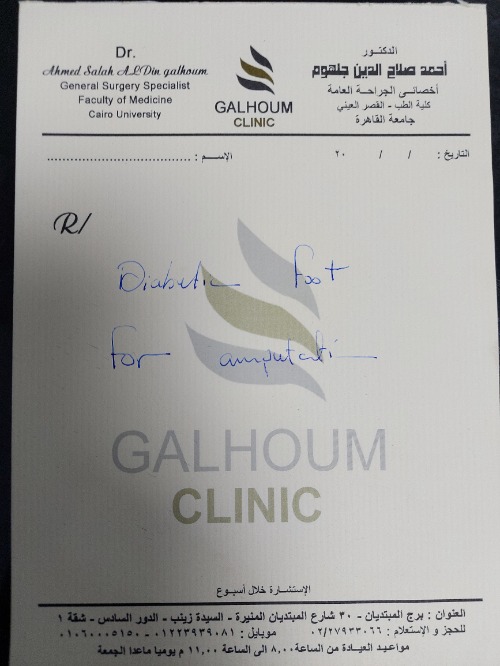 Dr.
Ahmed Salah ALDin galhoum
General Surgery Specialist
Faculty of Medicine
Cairo University
GALHOUM
CLINIC
الدكتور
أحمد صلاح الدين جلهوم
أخصائى الجراحة العامة
كلية الطب - القصر العيني
جامعة القاهرة
التاريخ : / / ٢٠
الإسم :
R/
Diabetic foot
for amputation
GALHOUM
CLINIC
الإستشارة خلال أسبوع
العنوان : برج المبتديان - ٣٠ شارع المبتديان المنيرة - السيدة زينب - الدور السادس - شقة ١
للحجز و الإستعلام : ٠٢/٢٧٩٣٣٠٦٦ موبايل : ٠١٢٢٣٩٣٩٠٨١ - ٠١٠٦٠٠٠٥١٥٠
مواعيد العيادة من الساعة ٨,٠٠ الى الساعة ١١,٠٠ م يوميا ماعدا الجمعة